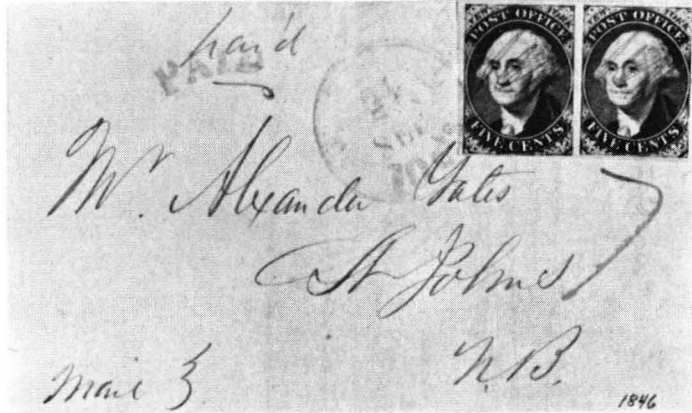 paid
PAID
24
SEP
10
POST OFFICE
FIVE CENTS
POST OFFICE
FIVE CENTS
Mr. Alexander Yates
St Johns
N.B.
Mail
1846